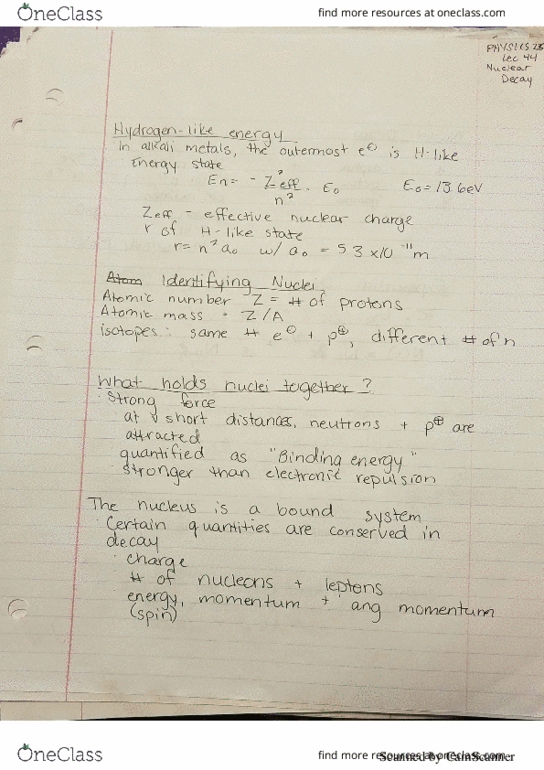 OneClass
find more resources at oneclass.com
PHYSICS 2B
Lec 44
Nuclear
Decay
Hydrogen-like energy
In alkali metals, the outermost e⊖ is H-like
Energy state
En = - Z²eff/n² · E₀ E₀ = 13 6eV
Zeff - effective nuclear charge
r of H-like state
r = n² a₀ w/ a₀ = 5 3 x10⁻¹¹ m
Atom Identifying Nuclei
Atomic number Z = # of protons
Atomic mass · Z/A
isotopes: same # e⊖ + p⊕, different # of n
What holds nuclei together?
· Strong force
at v short distances, neutrons + p⊕ are
attracted
quantified as "Binding energy"
stronger than electronic repulsion
The nucleus is a bound system
· Certain quantities are conserved in
decay
· charge
# of nucleons + leptons
energy, momentum + ang momentum
(spin)
OneClass
find more resources at oneclass.com
Scanned by CamScanner